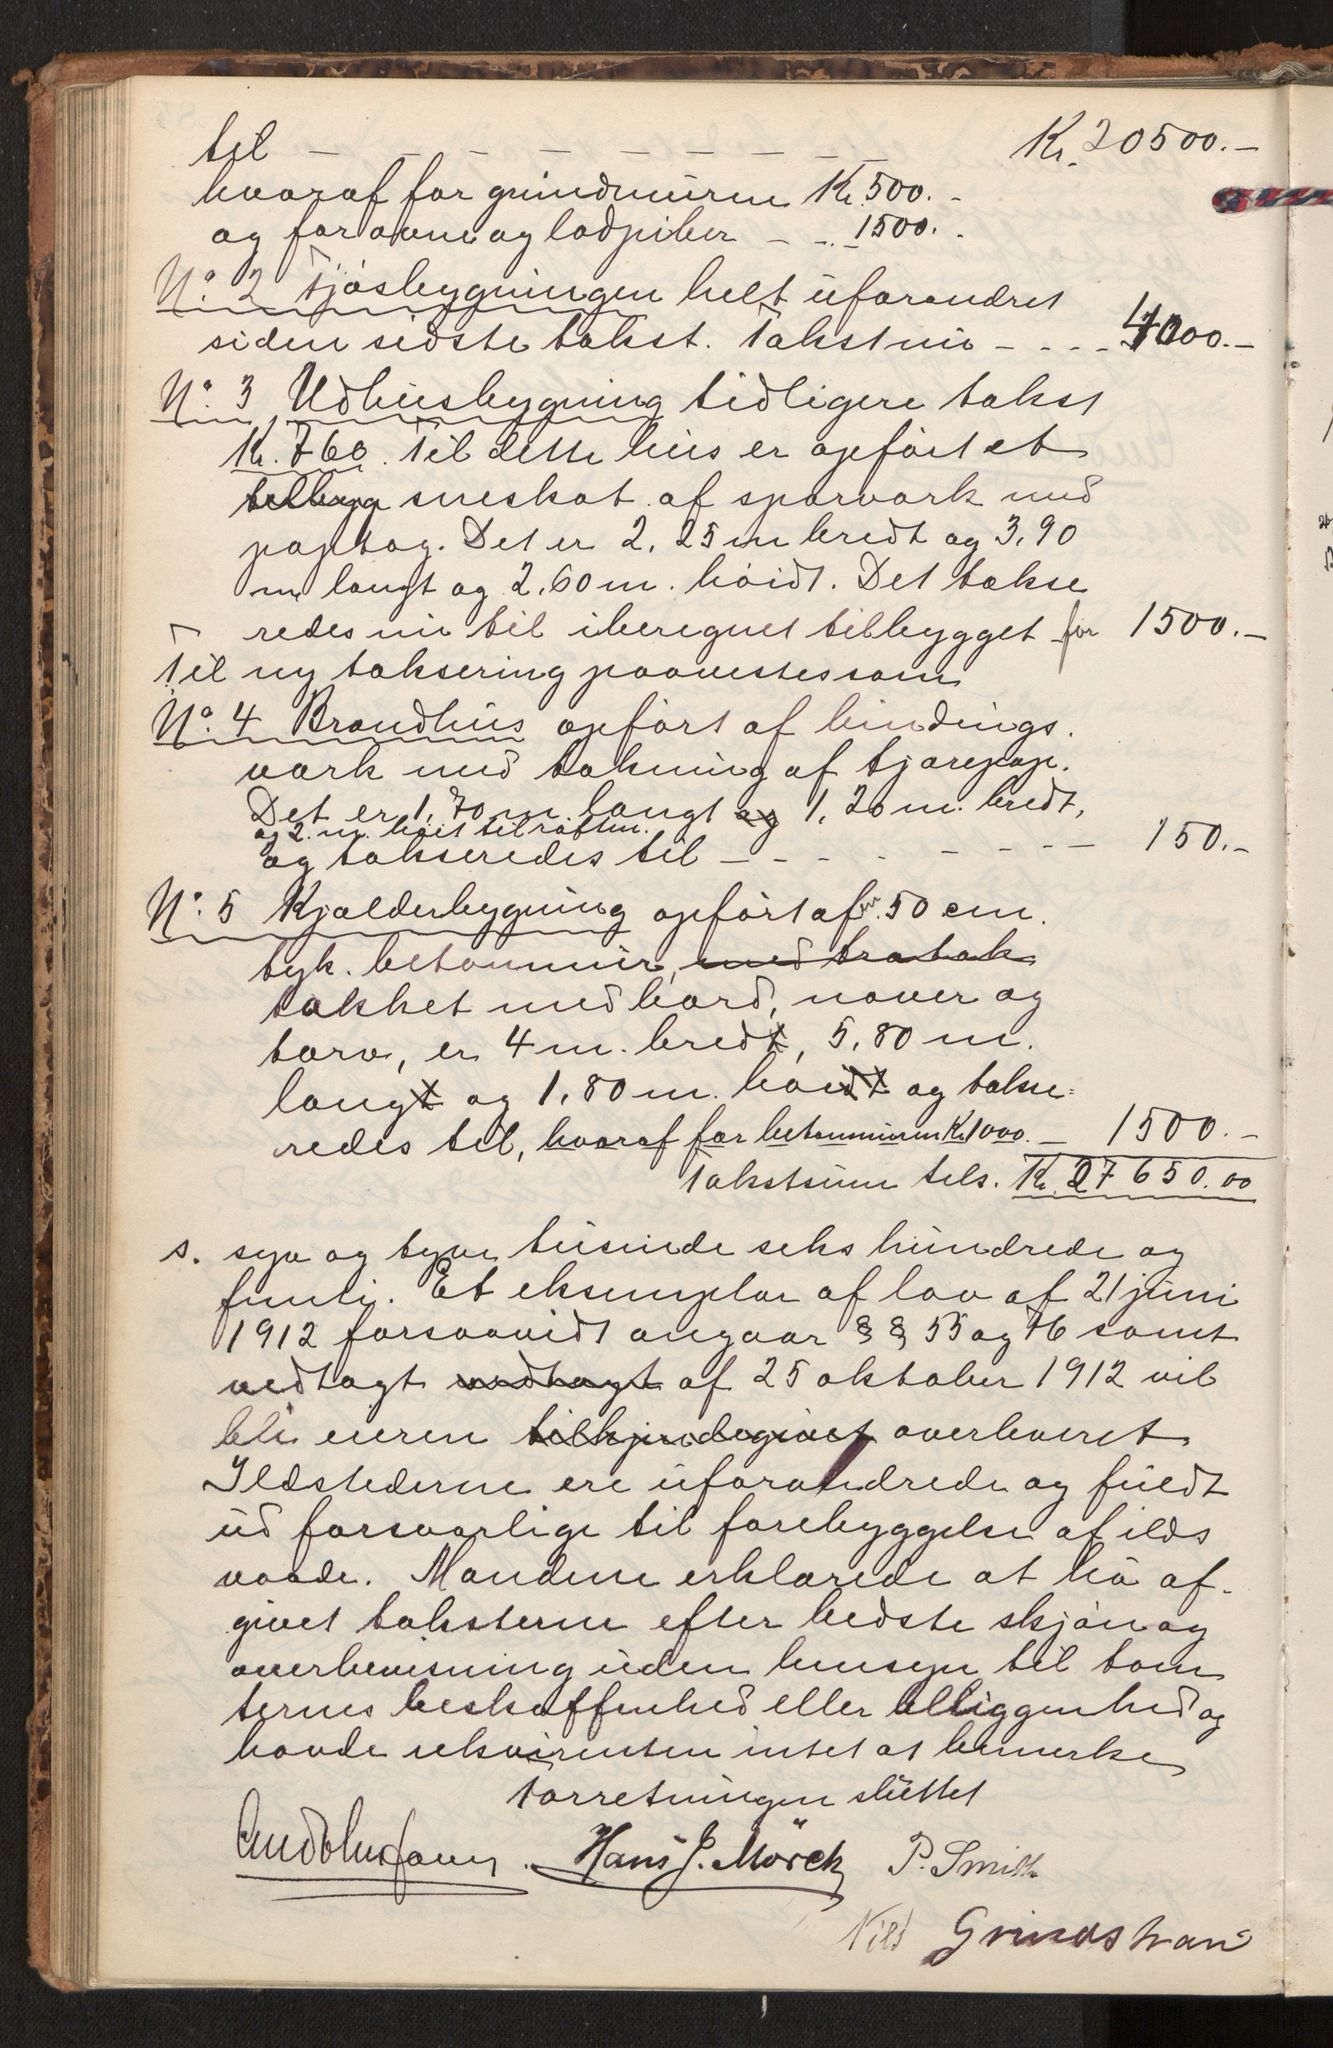 til — — — — — — — — Kr. 20500.—
hvoraf for grundmuren Kr. 500.—
og for ovne og lodpiber — „ 1500.—
No. 2 Fjösbygningen helt uforandret
siden sidste takst. Takst nu — - - - 4000.—
No. 3 Udhusbygning tidligere takst
Kr. 760. Til dette hus er opfört et
tilbyg sneskot af sparværk med
paptag. Det er 2,25 m bredt og 3,90
m langt og 2,60 m. höidt. Det takse
redes nu til iberegnet tilbygget for 1500.—
Til ny taksering paavistes som
No. 4 Brandhus opfört af bindings.
værk med tækning af tjærepap.
Det er 1,70 m. langt og 1,20 m. bredt,
og 2 m. höit til röstene.
og takseredes til — - - - - - - — 150.—
No. 5 Kjælderbygning opfört af en 50 cm.
tyk. betonmur, med trætak
takket med bord, næver og
torv, er 4 m. bredt, 5,80 m.
langt og 1,80 m. höidt og takse=
redes til, hvoraf for betonmuren Kr. 1000.— 1500.—
Takstsum tils. Kr. 27650.00
s. syv og tyve tusinde seks hundrede og
femti. Et eksemplar af lov af 21 juni
1912 forsaavidt angaar §§ 55 og 76 samt
vedtægt vedtægt af 25 oktober 1912 vil
bli eieren tilkjendegivet overleveret
Ildstederne ere uforandrede og fuldt
ud forsvarlige til forebyggelse af ilds
vaade. Mændene erklærede at ha af-
givet taksterne efter bedste skjön og
overbevisning uden hensyn til tom
ternes beskaffenhed eller beliggenhed og
havde rekvirenten intet at bemerke
Forretningen sluttet
Hans J. Mörck P. Smith
Nils Grindstran